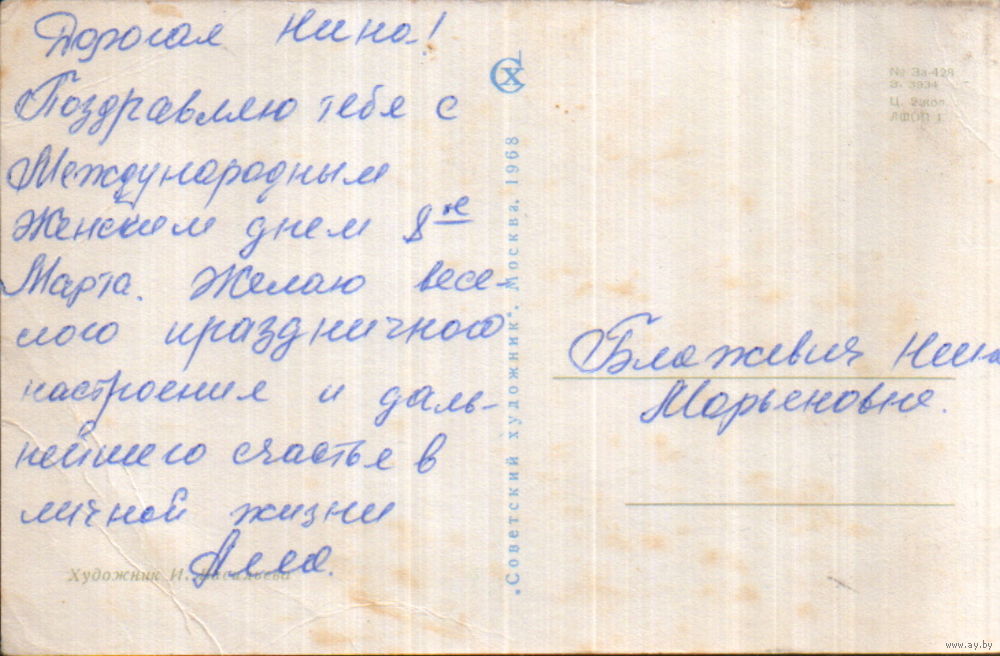 Дорогая Нина!
Поздравляю тебя с
Международным
Женским днем 8 е
Марта. Желаю весе-
лого праздничного
настроения и даль-
нейшего счастья в
личной жизни
Алла.
Художник И. Васильева
„Советский художник“. Москва. 1968
СХ
№ За-428
З. 3934
ЛФОП 1
Блажевич Нина
Марьеновне.
www.ay.by